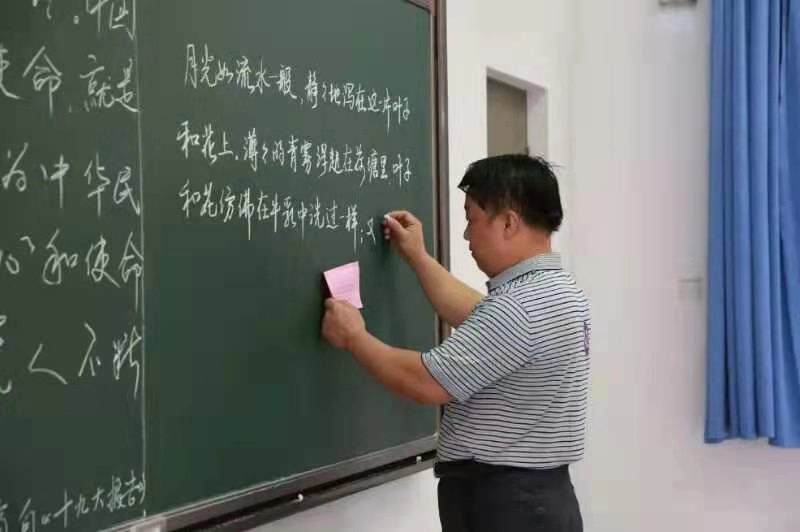 中国
使命，就是
为中华民
心和使命
人不断
自《十九大报告》
月光如流水一般，静々地泻在这一片叶子
和花上。薄々的青雾浮起在荷塘里。叶子
和花仿佛在牛乳中洗过一样；又